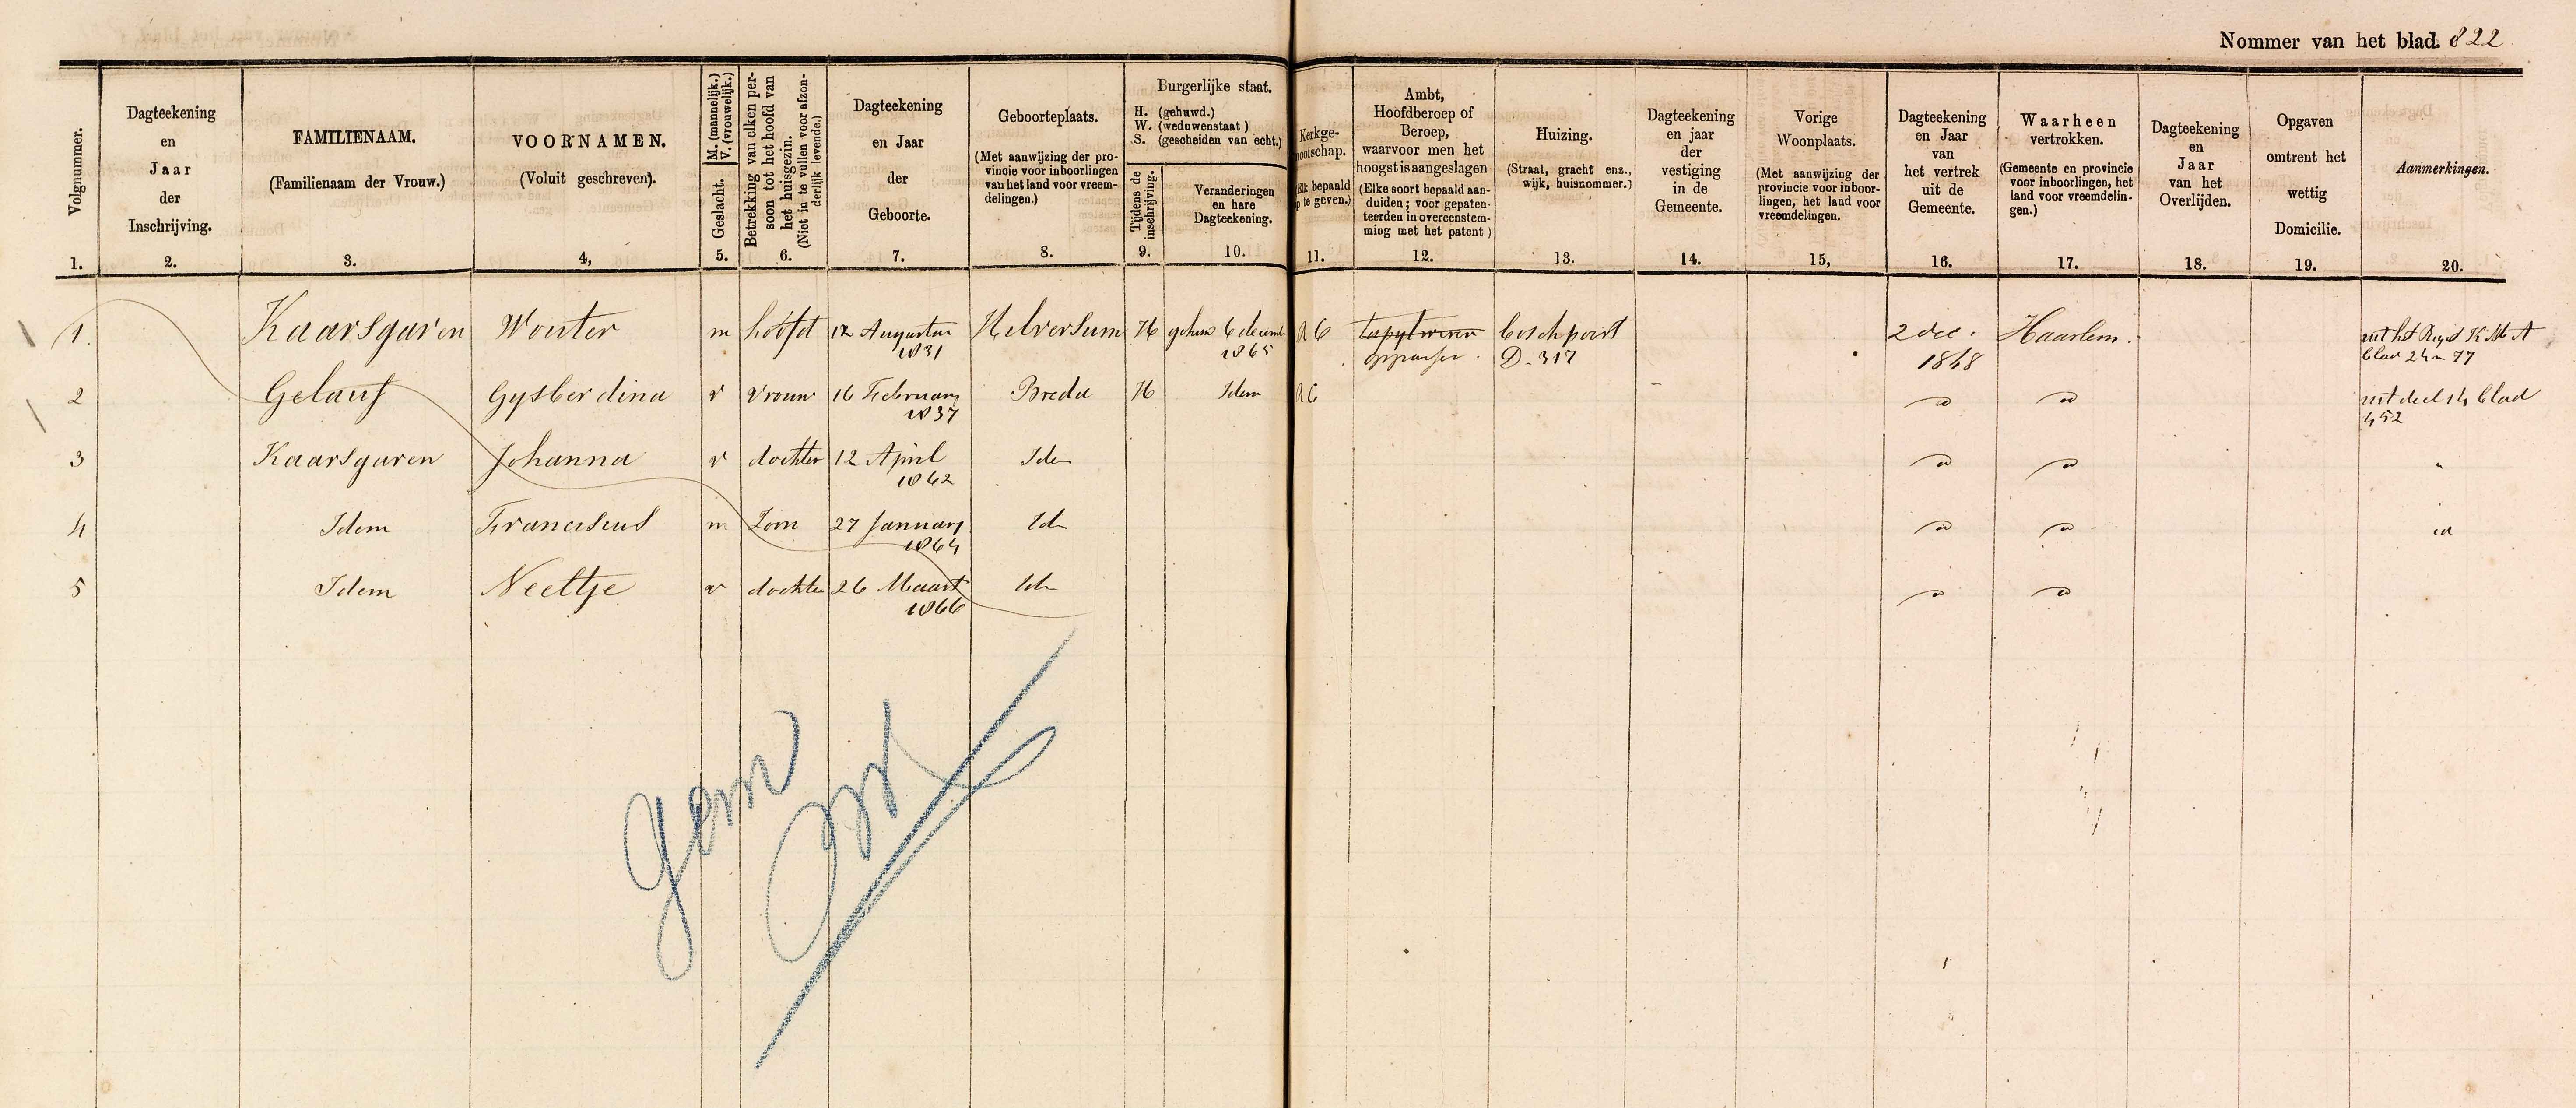 Nommer van het blad. 822
Volgnummer.
1.
Dagteekening
en
Jaar
der
Inschrijving.
2.
FAMILIENAAM.
(Familienaam der Vrouw.)
3.
VOORNAMEN.
(Voluit geschreven).
4,
Geslacht. M. (mannelijk.)
V. (vrouwelijk.)
5.
Betrekking van elken per-
soon tot het hoofd van
het huisgezin.
(Niet in te vullen voor afzon-
derlijk levende.)
6.
Dagteekening
en Jaar
der
Geboorte.
7.
Geboorteplaats.
(Met aanwijzing der pro-
vincie voor inboorlingen
van het land voor vreem-
delingen.)
8.
Burgerlijke staat.
H. (gehuwd.)
W. (weduwenstaat)
S. (gescheiden van echt.)
Tijdens de
inschrijving.
9.
Veranderingen
en hare
Dagteekening.
10.
Kerkge-
nootschap.
Elk bepaald
op te geven.)
11.
Ambt,
Hoofdberoep of
Beroep,
waarvoor men het
hoogst is aangeslagen
(Elke soort bepaald aan-
duiden; voor gepaten-
teerden in overeenstem-
ming met het patent)
12.
Huizing.
(Straat, gracht enz.,
wijk, huisnommer.)
13.
Dagteekening
en jaar
der
vestiging
in de
Gemeente.
14.
Vorige
Woonplaats.
(Met aanwijzing der
provincie voor inboor-
lingen, het land voor
vreemdelingen.
15,
Dagteekening
en Jaar
van
het vertrek
uit de
Gemeente.
16.
Waarheen
vertrokken.
(Gemeente en provincie
voor inboorlingen, het
land voor vreemdelin-
gen.)
17.
Dagteekening
en
Jaar
van het
Overlijden.
18.
Opgaven
omtrent het
wettig
Domicilie.
19.
Aanmerkingen.
20.
1. Kaarsgaren Wouter m hoofd 12 Augustus Hilversum H gehuwd 6 decemb R C boschpoort 2 dec. Haarlem.
1831 1865 oppasser. D. 317 1868 blad 24 en 77
2 Gelauf Gysberdina v vrouw 16 February Breda H Idem R C uit deel 14 blad
1837 452
3 Kaarsgaren Johanna v dochter 12 April Idem "
1862
4 Idem Franciscus m Zoon 27 January Id id
1864
5 Idem Neeltje v dochter 26 Maart Id
1866
gem